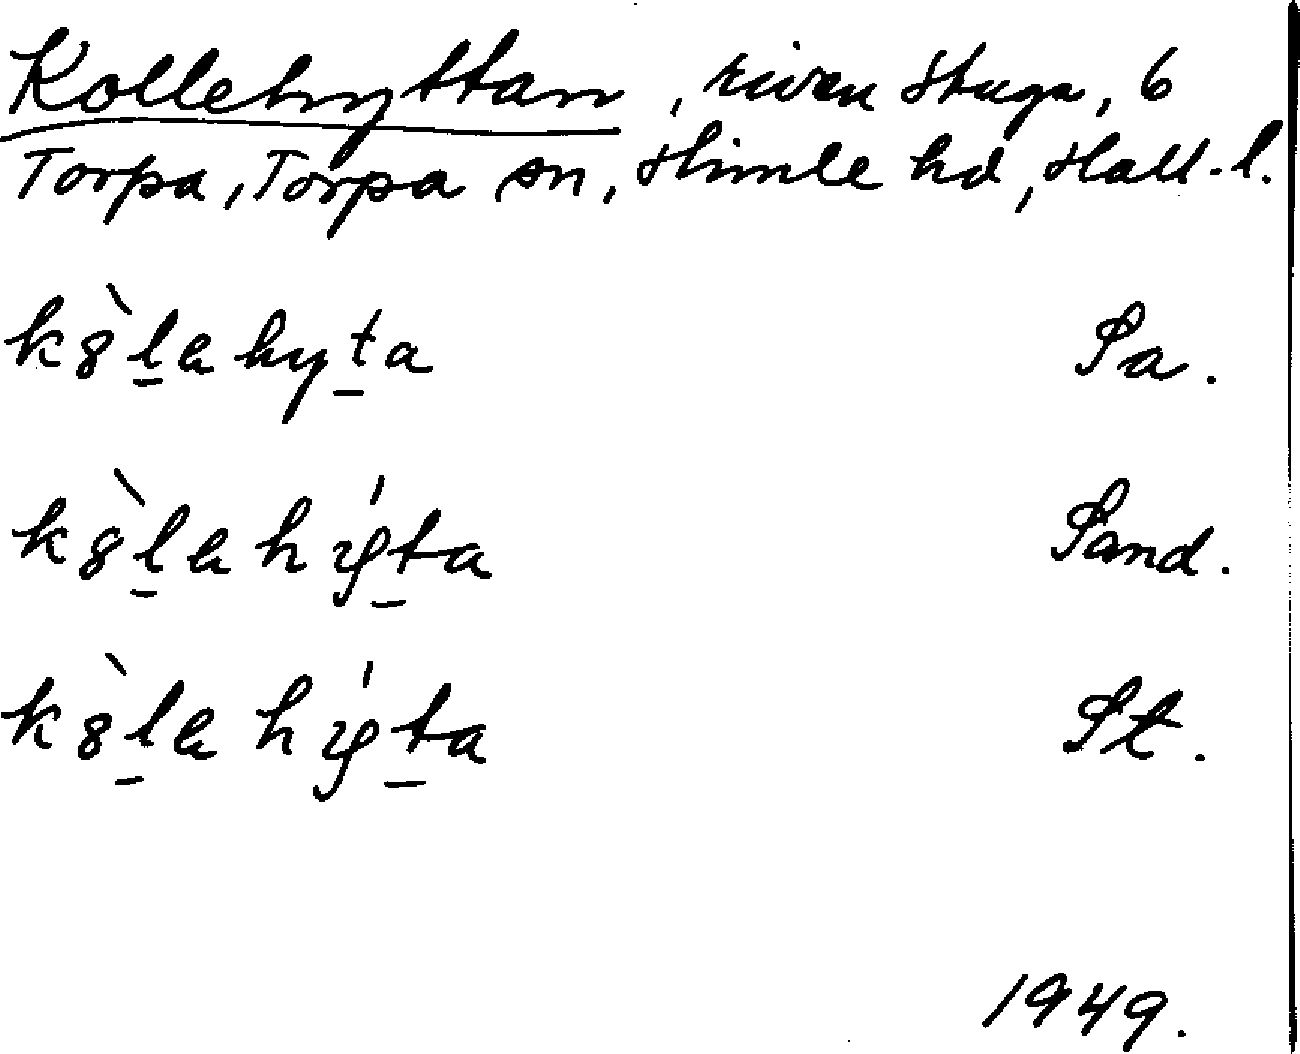 Kollehyttan, riven stuga, 6
Torpa, Torpa sn, Himle hd, Hall. l.
kö̀l̠ahyt̠a Sa.
kö̀l̠ahý̠t̠a Sand.
kö̀l̠ahý̠t̠a St.
1949.